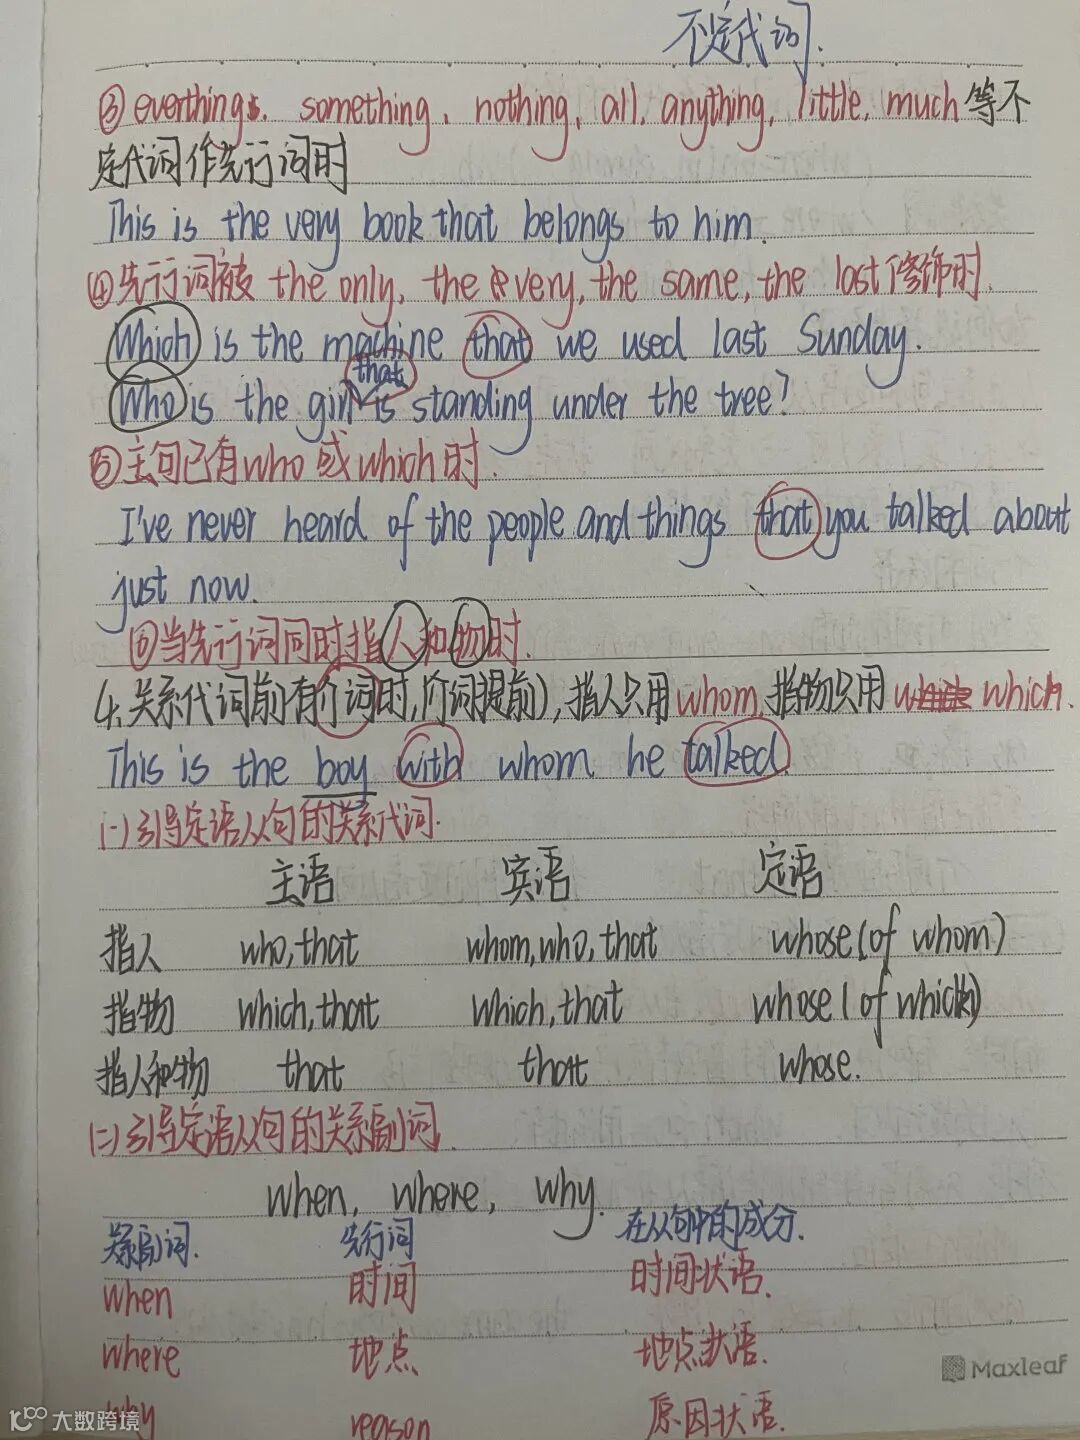 不定代词.
③everthing、something、nothing, all, anything, little, much等不
定代词作先行词时
This is the very book that belongs to him.
④先行词被 the only, the very, the same, the last修饰时.
Which is the machine that we used last Sunday.
that
Who is the girl is standing under the tree?
⑤主句已有who或which时.
I've never heard of the people and things that you talked about
just now.
⑥当先行词同时指人和物时.
4.关系代词前有介词时,(介词提前),指人只用whom,指物只用which.
This is the boy with whom he talked.
(一)引导定语从句的关系代词.
主语 宾语 定语
指人 who,that whom,who,that whose(of whom)
指物 which,that which,that whose(of which)
指人和物 that that whose.
(二)引导定语从句的关系副词.
when, where, why.
关系副词. 先行词 在从句中的成分.
when 时间 时间状语.
where 地点 地点状语.
Maxleaf
why reason 原因状语.
大数跨境